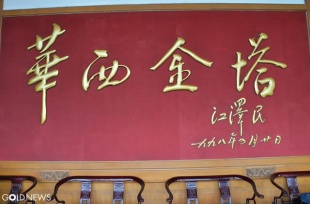 華西金塔
江澤民
一九九八年四月廿日
GOLDNEWS